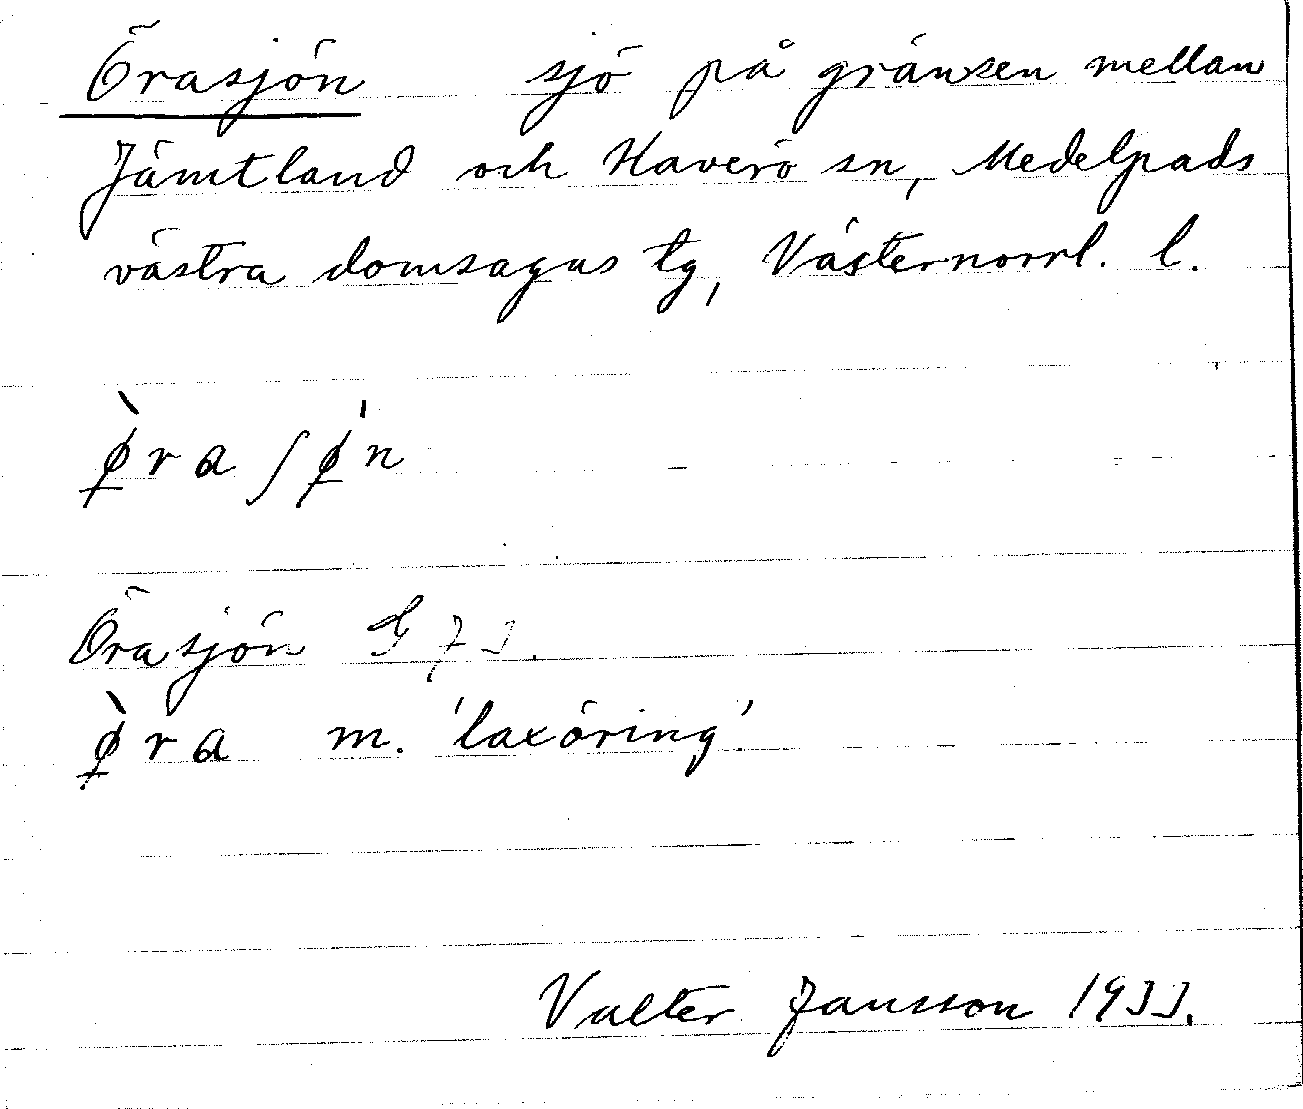 Örasjön sjö på gränsen mellan
Jämtland och Haverö sn, Medelpads
västra domsagas tg, Västernorrl. l.
ø̱̀ra ʃǿ̱n
Örasjön G 73.
ø̱̀ra m. 'laxöring'
Valter Jansson 1933.